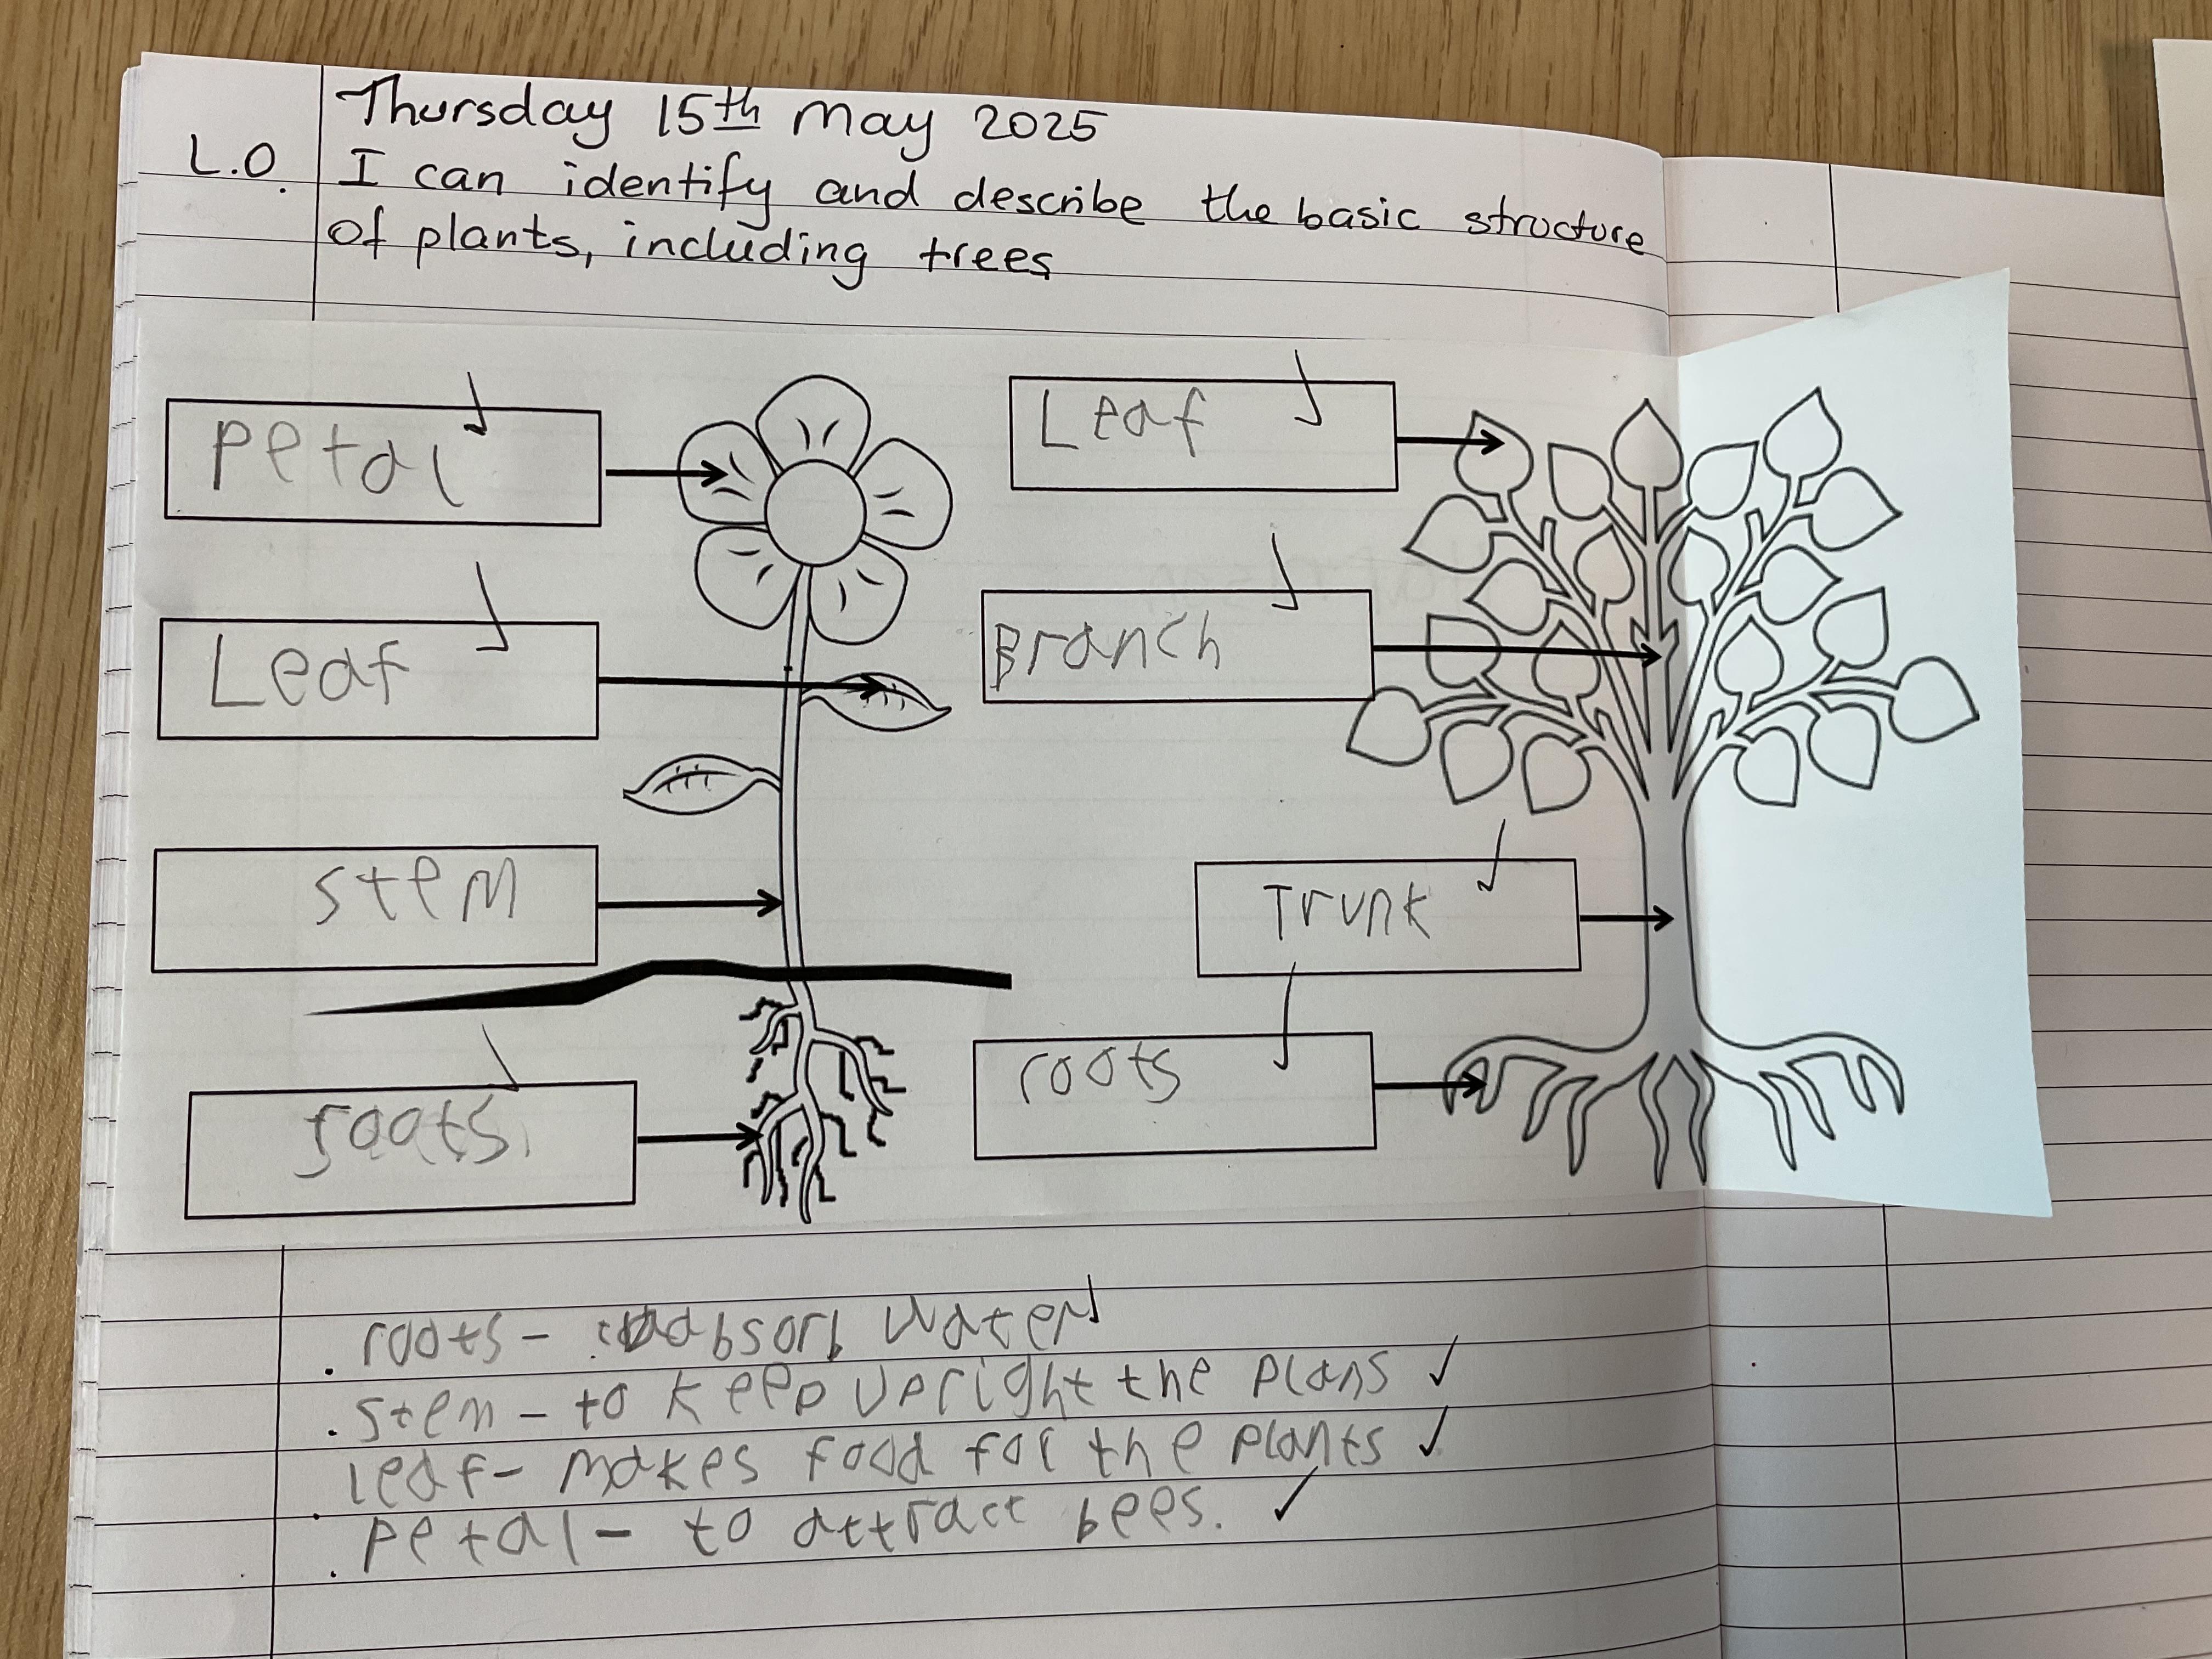 Thursday 15th May 2025
L.O. I can identify and describe the basic structure
of plants, including trees
Petal
Leaf
stem
roots.
Leaf
Branch
Trunk
roots
. roots - absorb water
. stem - to keep upright the plans
leaf - makes food for the plants
. petal - to attract bees.